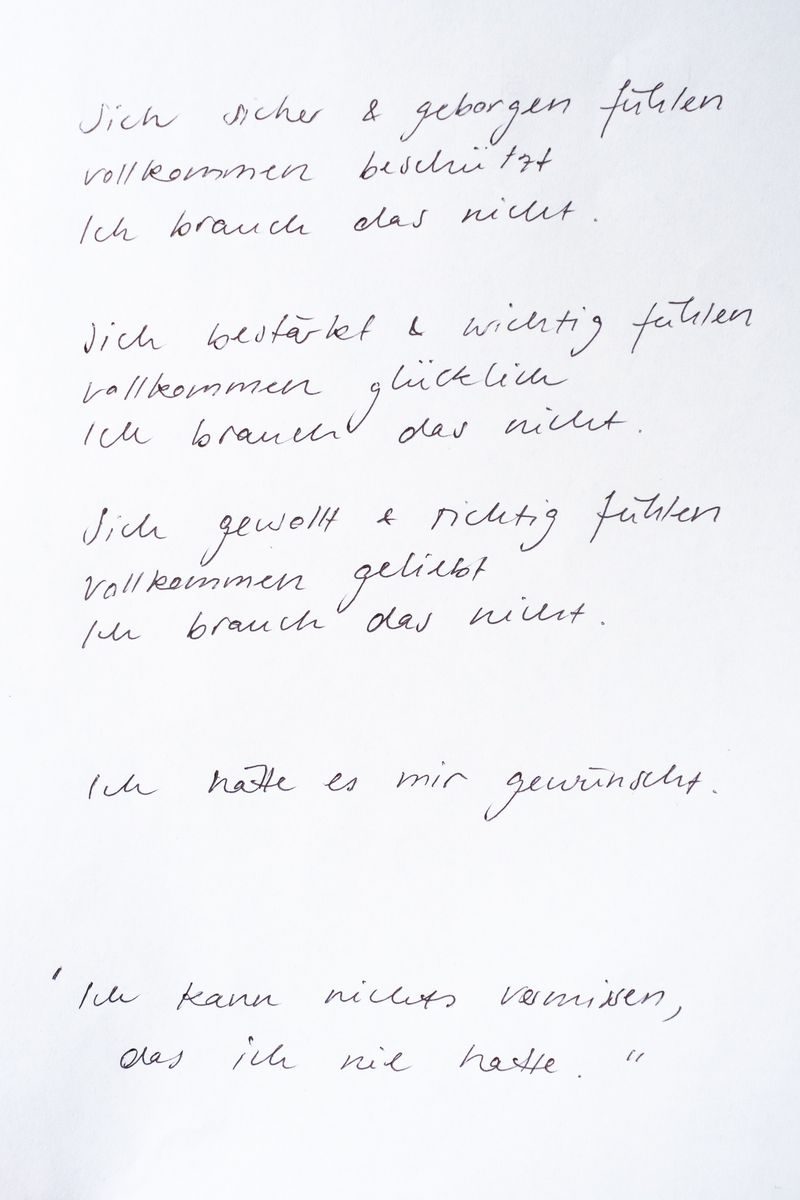 Sich sicher & geborgen fühlen
vollkommen beschützt
Ich brauch das nicht.
Sich bestärkt & wichtig fühlen
vollkommen glücklich
Ich brauch das nicht.
Sich gewollt & richtig fühlen
vollkommen geliebt
Ich brauch das nicht.
Ich hätte es mir gewünscht.
"Ich kann nichts vermissen,
das ich nie hatte."